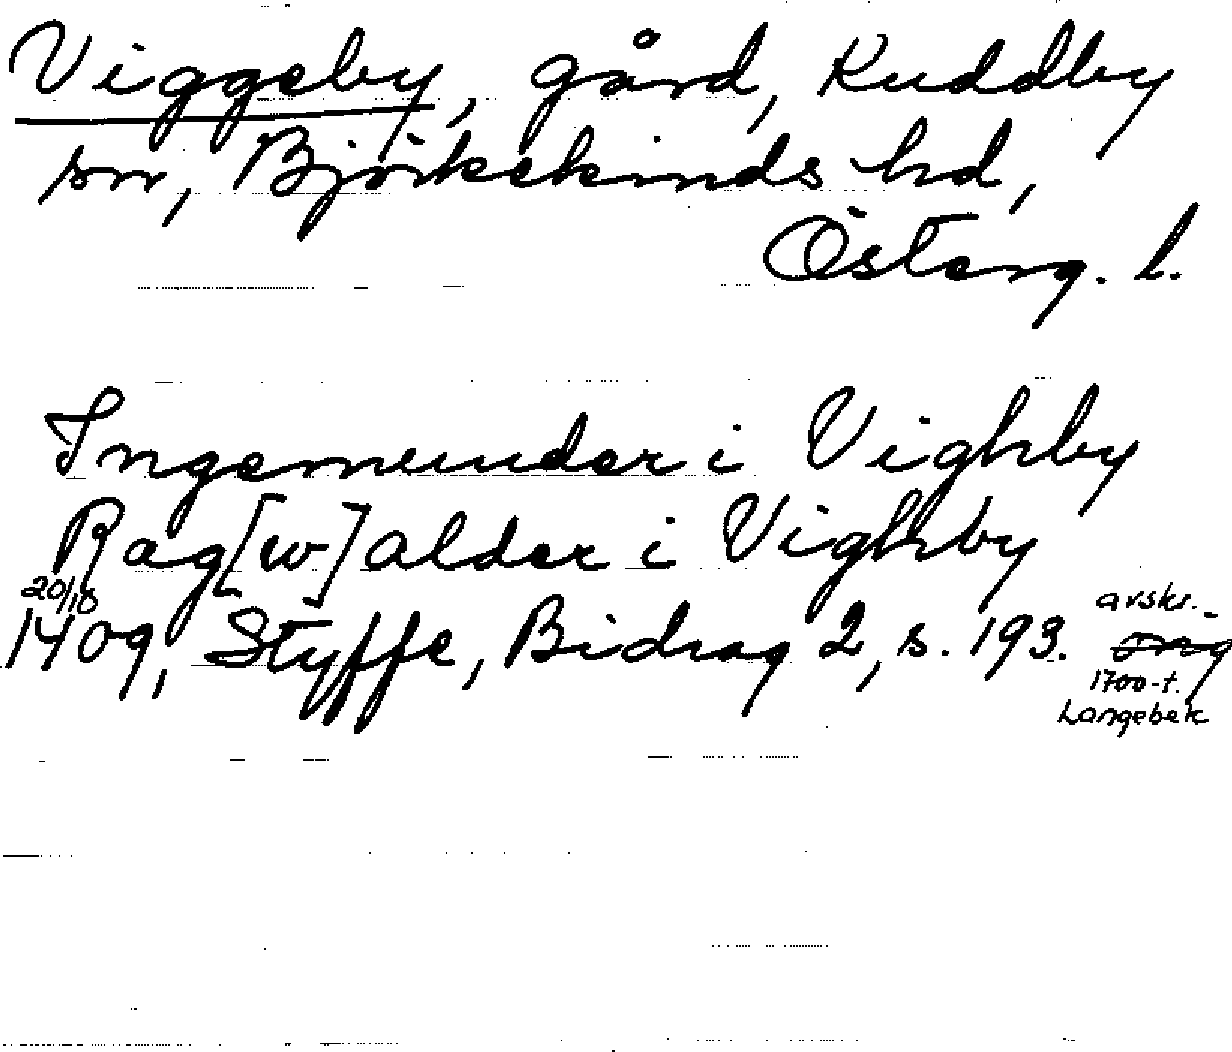 Viggeby, gård, Kuddby
sn, Björkekinds hd,
Österg. l.
Ingemunder i Vighby
Rag[w]alder i Vighby
20/10
1409, Styffe, Bidrag 2, s. 193.
avskr.
orig
1700-t.
Langebek